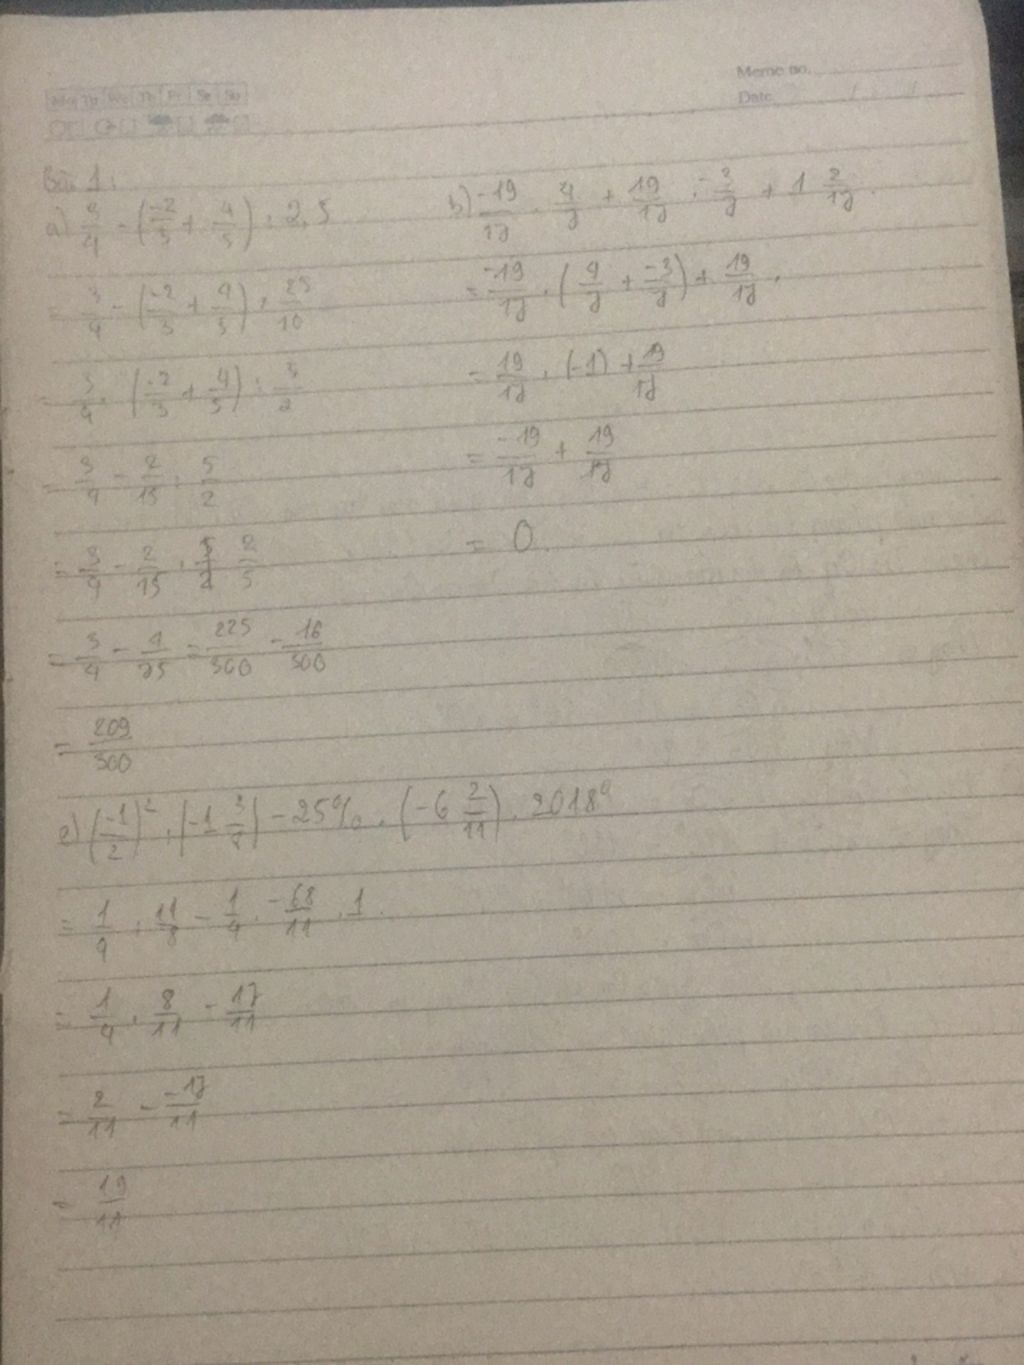 Memo no.
Date / /
Mo Tu We Th Fr Sa Su
Bài 1:
a) 3/4 - (-2/3 + 4/5) : 2,5
= 3/4 - (-2/3 + 4/5) : 25/10
= 3/4 - (-2/3 + 4/5) : 5/2
= 3/4 - 2/15 : 5/2
= 3/4 - 2/15 . 2/5
= 3/4 - 4/75 = 225/300 - 16/300
= 209/300
b) -19/17 . 4/7 + 19/17 . -3/7 + 1 2/17 .
= -19/17 . (4/7 + -3/7) + 19/17 .
= 19/17 . (-1) + 19/17
= -19/17 + 19/17
= 0
c) (-1/2)² : |-1 3/8| - 25% . (-6 2/11) . 2018⁰
= 1/4 : 11/8 - 1/4 . -68/11 . 1
= 1/4 . 8/11 - -17/11
= 2/11 - -17/11
= 19/11